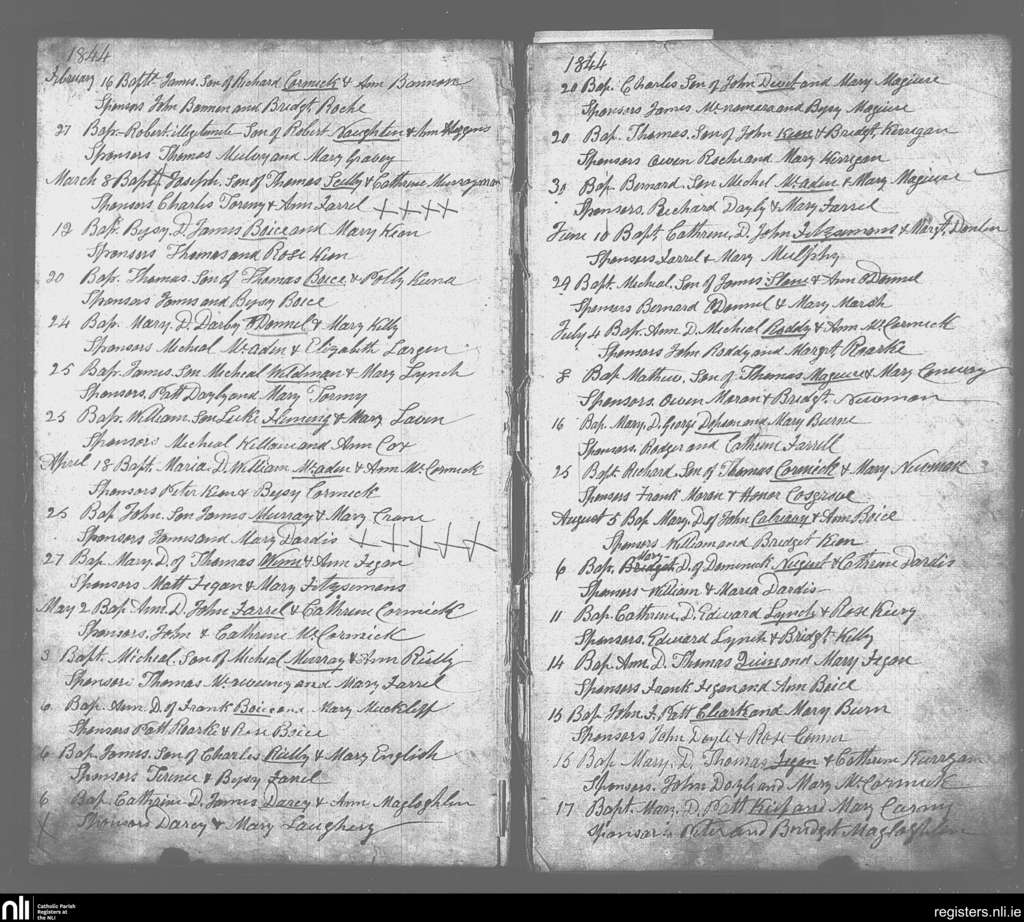 1844
February 16 Bapt. James. Son of Richard Cormick & Ann Bannon
Sponsors John Bannen and Bridgt. Roche
27 Bap. Robert illegitimate Son of Robert Naughten & Ann Higgins
Sponsors Thomas Mulvy and Mary Gravey
March 8 Bapt. Joseph. Son of Thomas Scully & Cathrine Murray
Sponsors. Charles Tormy & Ann Farrel ++++
12 Bap. Bepsy D. James Boice and Mary Kion
Sponsors Thomas and Rose Kion
20 Bap. Thomas. Son of Thomas Boice & Polly Keena
Sponsors James and Bepsy Boice
24 Bap. Mary. D. Darby O'Donnel & Mary Kelly
Sponsors Micheal McAden & Elizabeth Largen
25 Bap. James. Son Micheal Wildman & Mary Lynch
Sponsors. Patt Dayly and Mary Tormy
25 Bap. William. Son Luke Fleming & Mary Laven
Sponsors Micheal Killaire and Ann Cox
April 18 Bapt. Maria D. William McAden & Ann McCormick
Sponsors Peter Kion & Bepsy Cormick
25 Bap John. Son James Murray & Mary Crane
Sponsors James and Mary Dardis +++++
27 Bap. Mary. D. of Thomas & Ann Fegan
Sponsors Matt Fegan & Mary Fitzsimons
May 2 Bap. Ann. D. John Farrel & Cathrine Cormick
Sponsors. John & Cathrine McCormick
3 Bapt. Micheal. Son of Micheal Murray & Ann Rielly
Sponsors Thomas and Mary Farrel
6 Bap. Ann. D. of Frank Boice and Mary Muckliff
Sponsors Patt Roarke & Rose Boice
6 Bap. James. Son of Charles Rielly & Mary English
Sponsors Terence & Bepsy Farrel
6 Bap. Cathrine D. James Darcy & Ann Magloghlen
+ Sponsors Darcy & Mary Laughery
1844
20 Bap. Charles Son of John Dwit and Mary Maguire
Sponsors James McNamera and Bepsy Maguire
20 Bap. Thomas. Son of John Kion & Bridgt. Kerrigan
Sponsors Owen Roche and Mary Kerrigan
30 Bap. Bernard. Son Michel McAden & Mary Maguire
Sponsors. Richard Dayly & Mary Farrel
June 10 Bapt. Cathrine. D. John Fitzsimons & Margt. Donlen
Sponsors Farrel & Mary Mulphy
29 Bapt. Micheal. Son of James Slone & Ann O'Donnel
Sponsors Bernard O'Donnel & Mary Marsh
July 4 Bap. Ann D. Micheal Roddy & Ann McCormick
Sponsors John Roddy and Margrt. Roarke
8 Bap Mathew. Son of Thomas Maguire & Mary Coneway
Sponsors. Owen Moran & Bridgt. Newman
16 Bap. Mary. D. George Dopson and Mary Burne
Sponsors. Rodger and Cathrine Farrell
25 Bapt. Richard. Son of Thomas Cormick & Mary Newman
Sponsors Frank Moran & Honor Cosgrove
August 5 Bap Mary. D. of John Calvany & Ann Boice
Sponsors William and Bridget Kion
6 Bap. Bridget Mary D. of Dominick Nugent & Cathrine Dardis
Sponsors William & Maria Dardis
11 Bap. Cathrine. D. Edward Lynch & Rose Kiery
Sponsors. Edward Lynch & Bridgt. Kelly
14 Bap. Ann. D. Thomas Quinn and Mary Fegan
Sponsors Frank Fegan and Ann Boice
15 Bap. John. S. Patt Cleark and Mary Burn
Sponsors John Doyle & Rose Conner
15 Bap Mary. D. Thomas Fegan & Cathrine Kerrigan
Sponsors. John Dayly and Mary McCormick
17 Bapt. Mary. D. Patt Keif and Mary Carany
Sponsors Peter and Bridget Magloghlen
nli Catholic Parish
Registers at
the NLI
registers.nli.ie